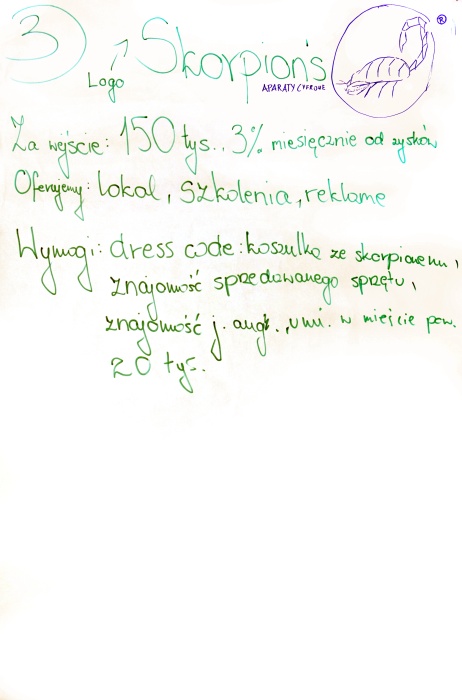 3
Skorpion's ®
Logo
APARATY CYFROWE
Za wejście: 150 tys., 3% miesięcznie od zysków
Oferujemy: lokal, szkolenia, reklamę
Wymogi: dress code: koszulka ze skorpionem,
znajomość sprzedawanego sprzętu,
znajomość j. ang., w mieście pow.
20 tys.